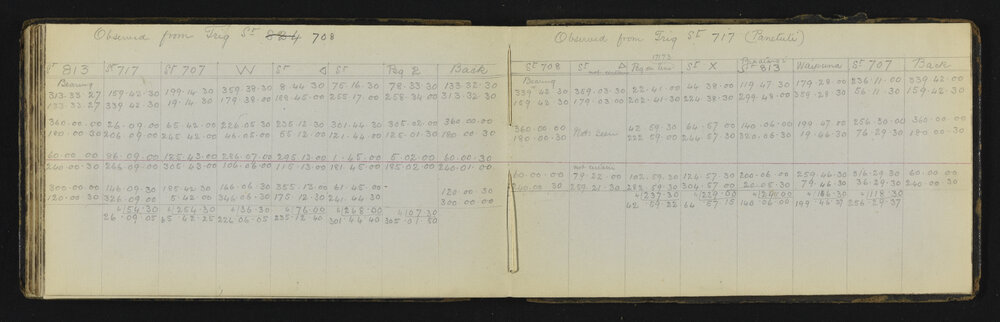 Observed from Trig St 824 708
St 813 St 717 St 707 W St Δ St Peg 2 Back
Bearing
313.33.27 159.42.30 199.14.30 359.38.30 8.44.30 75.16.30 78.33.30 133.32.30
133.33.27 339.42.30 19.14.30 179.38.00 188.45.00 255.17.00 258.34.00 313.32.30
360.00.00 26.09.00 65.42.00 226.05.30 235.12.30 301.44.30 305.02.00 360.00.00
180.00.00 206.09.00 245.42.00 46.05.00 55.12.00 121.44.00 125.01.30 180.00.30
60.00.00 86.09.00 125.43.00 286.07.00 295.13.00 1.45.00 5.02.00 60.00.30
240.00.30 266.09.00 305.43.00 106.06.00 115.13.00 181.45.00 185.02.00 240.01.00
300.00.00 146.09.30 185.42.30 166.06.30 355.13.00 61.45.00 120.00.30
120.00.30 326.09.00 5.42.00 346.06.30 175.12.30 241.44.30 300.00.00
4/54.30 4/254.30 4/36.30 4/76.00 4/268.00 4/107.30
26.09.05 65.42.25 226.06.05 235.12.40 301.44.40 305.01.50
Observed from Trig St 717 (Panetiti)
St 708 St Δ not certain Peg on line St X St 813 Waipuna St 707 Back
Bearing
339.42.30 359.03.30 22.41.00 44.38.00 119.47.30 179.28.00 236.11.00 339.42.00
159.42.30 179.03.00 202.41.30 224.38.30 299.48.00 359.28.30 56.11.30 159.42.30
360.00.00 Not seen 42.59.30 64.57.00 140.06.00 199.47.00 256.30.00 360.00.00
180.00.00 222.59.00 244.57.30 320.06.30 19.46.30 76.29.30 180.00.30
not certain
60.00.00 79.22.00 102.59.30 124.57.30 200.06.00 259.46.30 316.29.30 60.00.00
240.00.30 259.21.30 282.59.30 304.57.00 20.05.30 79.46.30 36.29.30 240.00.30
4/237.30 4/229.00 4/24.00 4/186.30 4/118.30
42.59.22 64.57.15 140.06.00 199.46.37 256.29.37